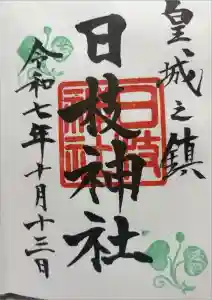 皇城之鎮
日枝神社
日枝神社
令和七年十月十三日